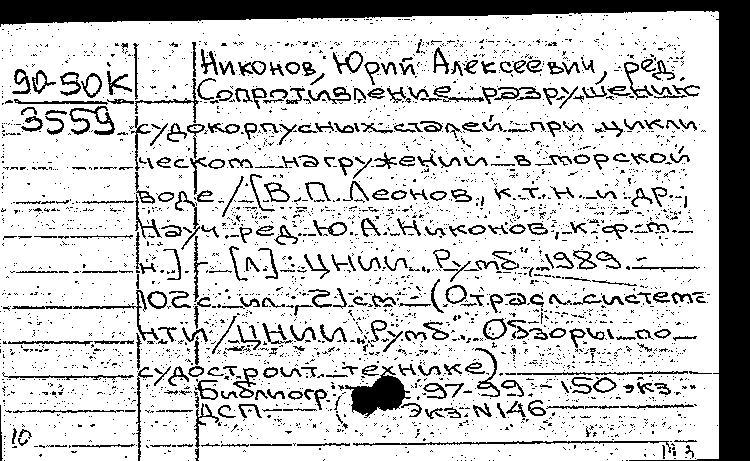 90-50К
3559
Никонов, Юрий Алексеевич, ред.
Сопротивление разрушению
судокорпусных сталей при цикли
ческом нагружении в морской
воде / [В. П. Леонов, к. т. н. и др.;
Науч. ред. Ю. А. Никонов, к. ф-т.
н.] - [Л.]: ЦНИИ "Румб", 1989. -
102 с. ил.; 21 см - (Отрасл. система
НТИ / ЦНИИ "Румб". Обзоры по
судостроит. технике)
Библиогр.: 97-99. - 150 экз.
ДСП. ( Экз. N146
10